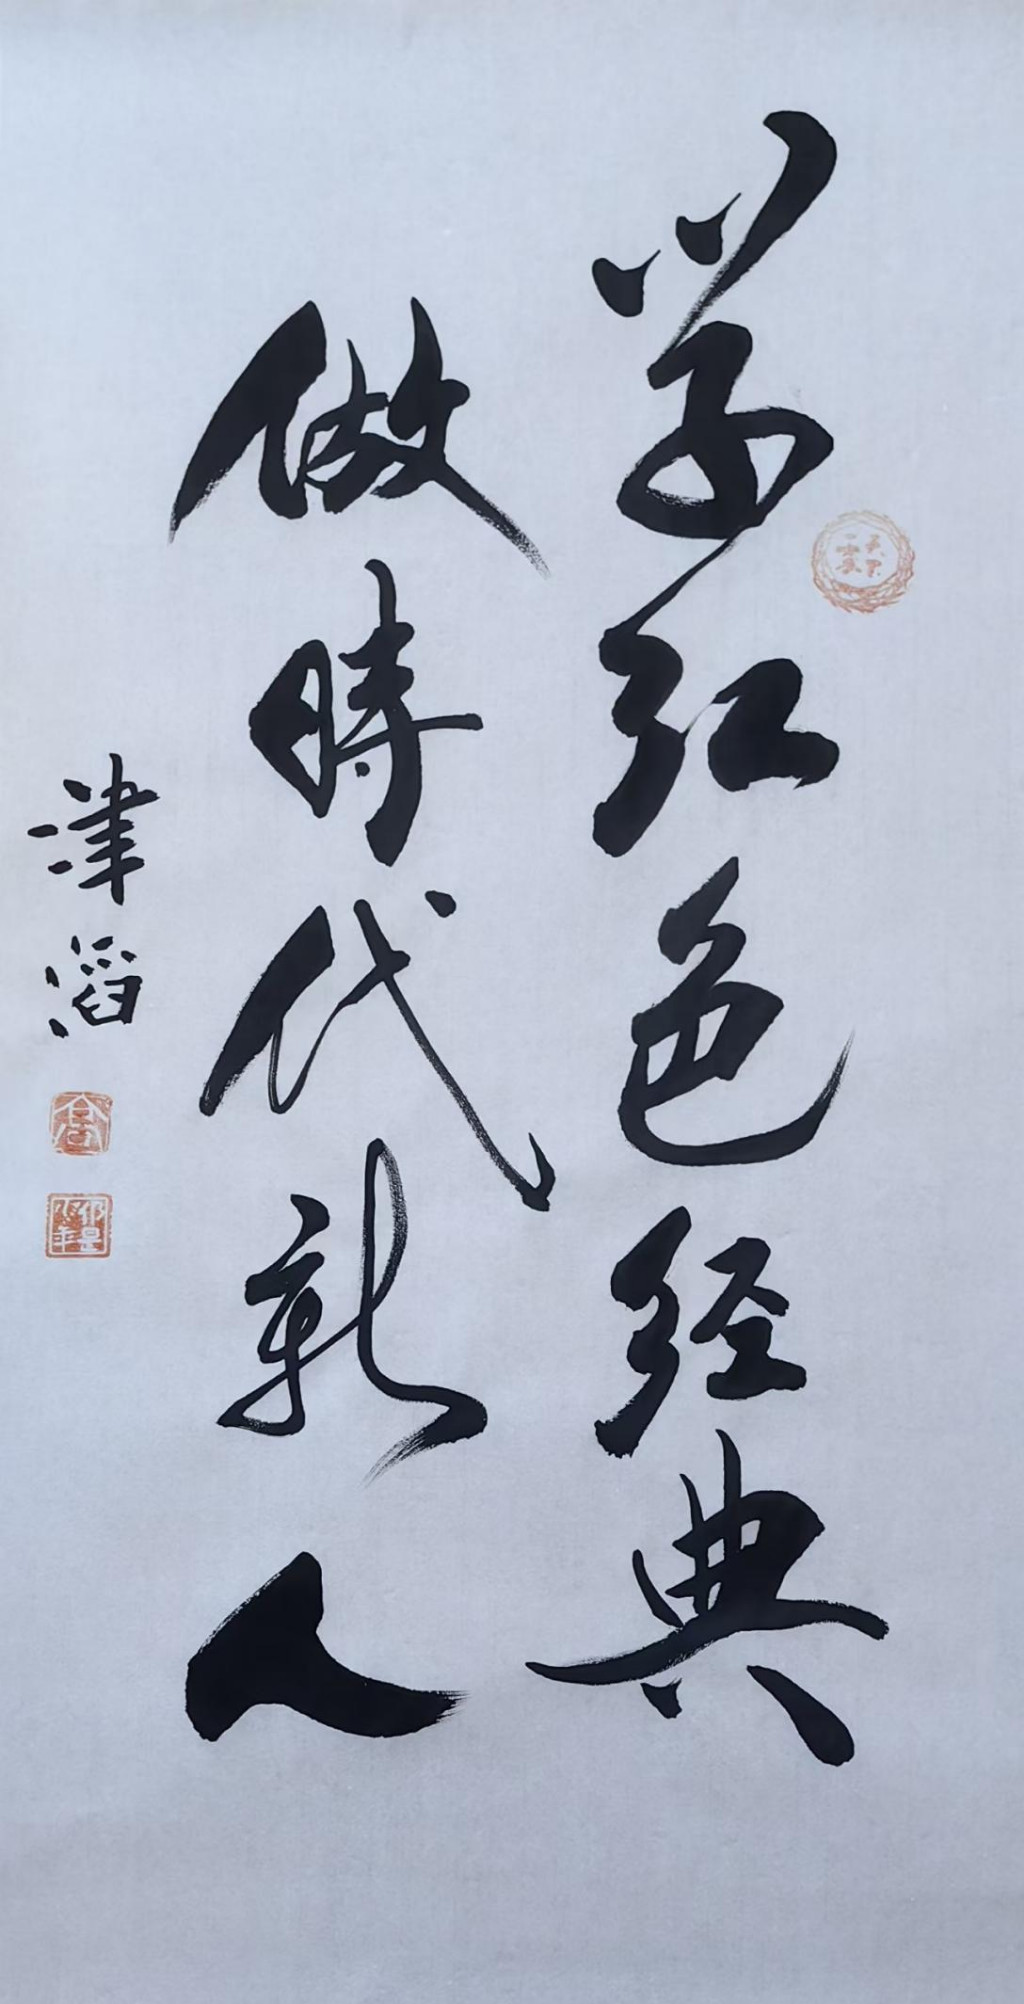 学红色经典
做時代新人
津滔